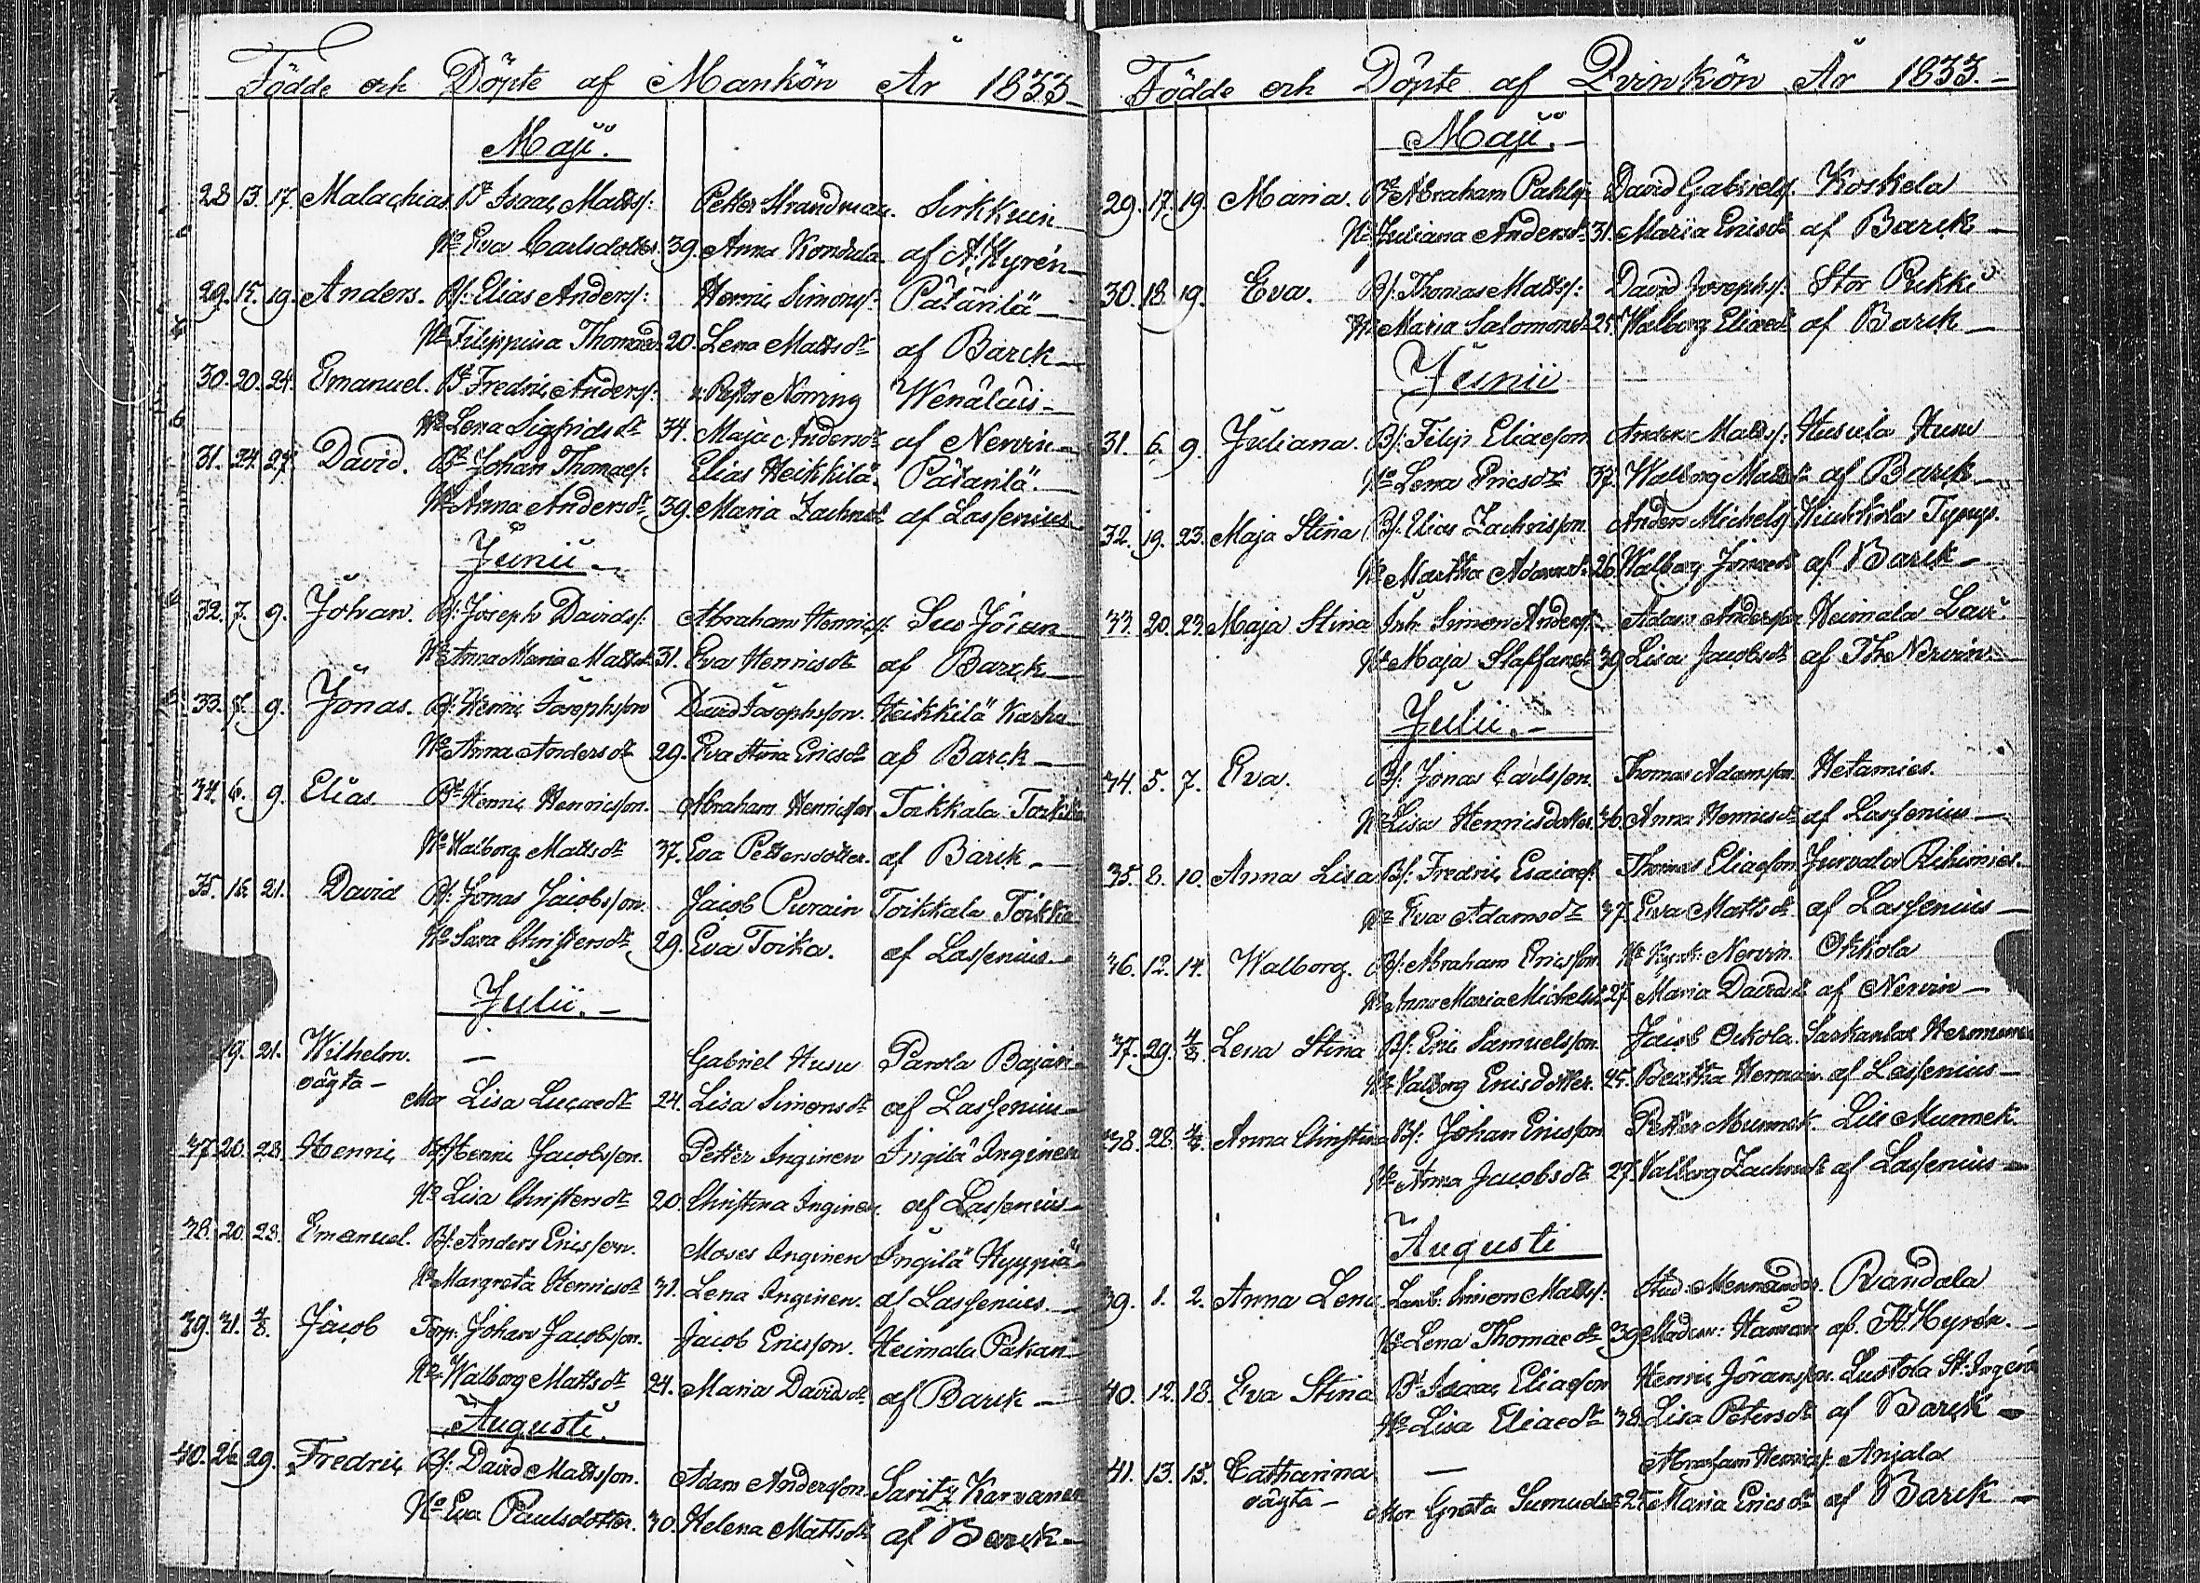 Födde och Döpte af Mankön År 1833
Maji.
28. 13. 17. Malachias. Isaac Matts: Petter Strandman. Sirkkuin
Ho Eva Carlsdotter 39. Anna af A: Hyrén
29. 15. 19. Anders. Bf: Elias Anders: Henric Simons: Pätärilä
Ho Filippina Thomaed 20. Lena Mattsdr af Barck
30. 20. 24. Emanuel. Fredric Anders: Norring
Ho Lena Sigfridsdr 34. Maja Andersdr af Nervin
31. 24. 27. David. Johan Thomaes: Elias Heikkilä. Pätärilä.
Ho Anna Andersdr 39. Maria af Lassenius
Junii
32. 7. 9. Johan. Bf: Joseph Davids: Abraham Henrics:
Ho Anna Maria 31. Eva Henricsdr af Barck
33. 9. Jonas. Bf: Henric Josephsson David Josephsson. Heikkilä Karhu
Ho Anna Andersdr 29. Eva Stina Ericsdr af Barck
34. 6. 9. Elias Henric Henricsson. Abraham Henricsson Toikkala
Ho Walborg Mattsdr 37. Eva Pettersdotter. af Barck
35. 21. David Bf: Jonas Jacobsson. Jacob Purain Toikkala Toikka
Ho Sara Christersdr 29. Eva Toika. af Lassenius
Julii.
19. 21. Wilhelm. — Gabriel Husu Parola
oägta — Mor Lisa Lucaedr 24. Lisa Simonsdr af Lassenius
37. 20. 28. Henric Henric Jacobsson. Petter Inginen Ingilä Inginen
Ho Lisa Christersdr 20. Christina Inginen. af Lassenius
38. 20. 28. Emanuel. Bf: Anders Ericsson. Moses Inginen Ingilä Hyypiä
Ho Margreta Henricsdr 31. Lena Inginen. af Lassenius.
39. 31. 4/8. Jacob Torp. Johan Jacobsson. Jacob Ericsson. Heimala Pakan
Ho Walborg Mattsdr 24. Maria Davidsdr af Barck
Augusti.
40. 26. 29. Fredric Bf: David Mattsson. Adam Andersson. Karvanen
Ho Eva Paulsdotter. 30. Helena Mattsdr af Barck
Födde och Döpte af Qvinkön År 1833.
Maji.
29. 17. 19. Maria. Abraham David Gabriels. Koskela
Ho Juliana Andersdr 31. Maria Ericsdr af Barck
30. 18. 19. Eva. Bf: Thomas Matts: David Josephs: Stor Rikki
Ho Maria Salomonsdr 25. Walborg Eliaedr af Barck
Junii
31. 6. 9. Juliana. Bf: Filip Eliaeson Anders Matts: Husula Husu
Ho Lena Ericsdr 37. Walborg Mattsdr af Barck
32. 19. 23. Maja Stina Bf: Elias Zachrisson. Anders Michels:
Ho Martha Adamsdr 26. Walborg af Barck
33. 20. 23. Maja Stina Inh. Simon Anders: Adam Andersson Heimala
Ho Maja Staffansdr 39. Lisa Jacobsdr af Nervin
Julii.
34. 5. 7. Eva. Bf: Jonas Carlsson. Thomas Adamsson. Hetamies.
Ho Lisa Henricsdotter. 36. Anna Henricsdr af Lassenius
35. 8. 10. Anna Lisa Bf: Fredric Esaiaes: Thomas Eliaeson Jurvala
Eva Adamsdr 37. Eva Mattsdr af Lassenius
36. 12. 14. Walborg. Bf: Abraham Ericsson. Nervin. Okkola
Ho Anna Maria Michelsd 27. Maria Davidsdr af Nervin
37. 29. 4/8 Lena Stina Bf: Eric Samuelsson. Jacob Ockola.
Ho Walborg Ericsdotter. 45. Beartha af Lassenius
38. 28. 4/8. Anna Christina Bf: Johan Ericsson Petter Munnek. Munnek.
Ho Anna Jacobsdr 27. Walborg af Lassenius
Augusti
39. 1. 2. Anna Lena Simon Matts: Randala
Ho Lena Thomaedr 39. af A: Hyrén.
40. 12. 18. Eva Stina Isaac Eliaeson Henric Jöransson.
Ho Lisa Eliaedr 38. Lisa Petersdr af Barck
41. 13. 15. Catharina — Abraham Henrics: Anjala
oägta — Mor Greta 25. Maria Ericsdr af Barck